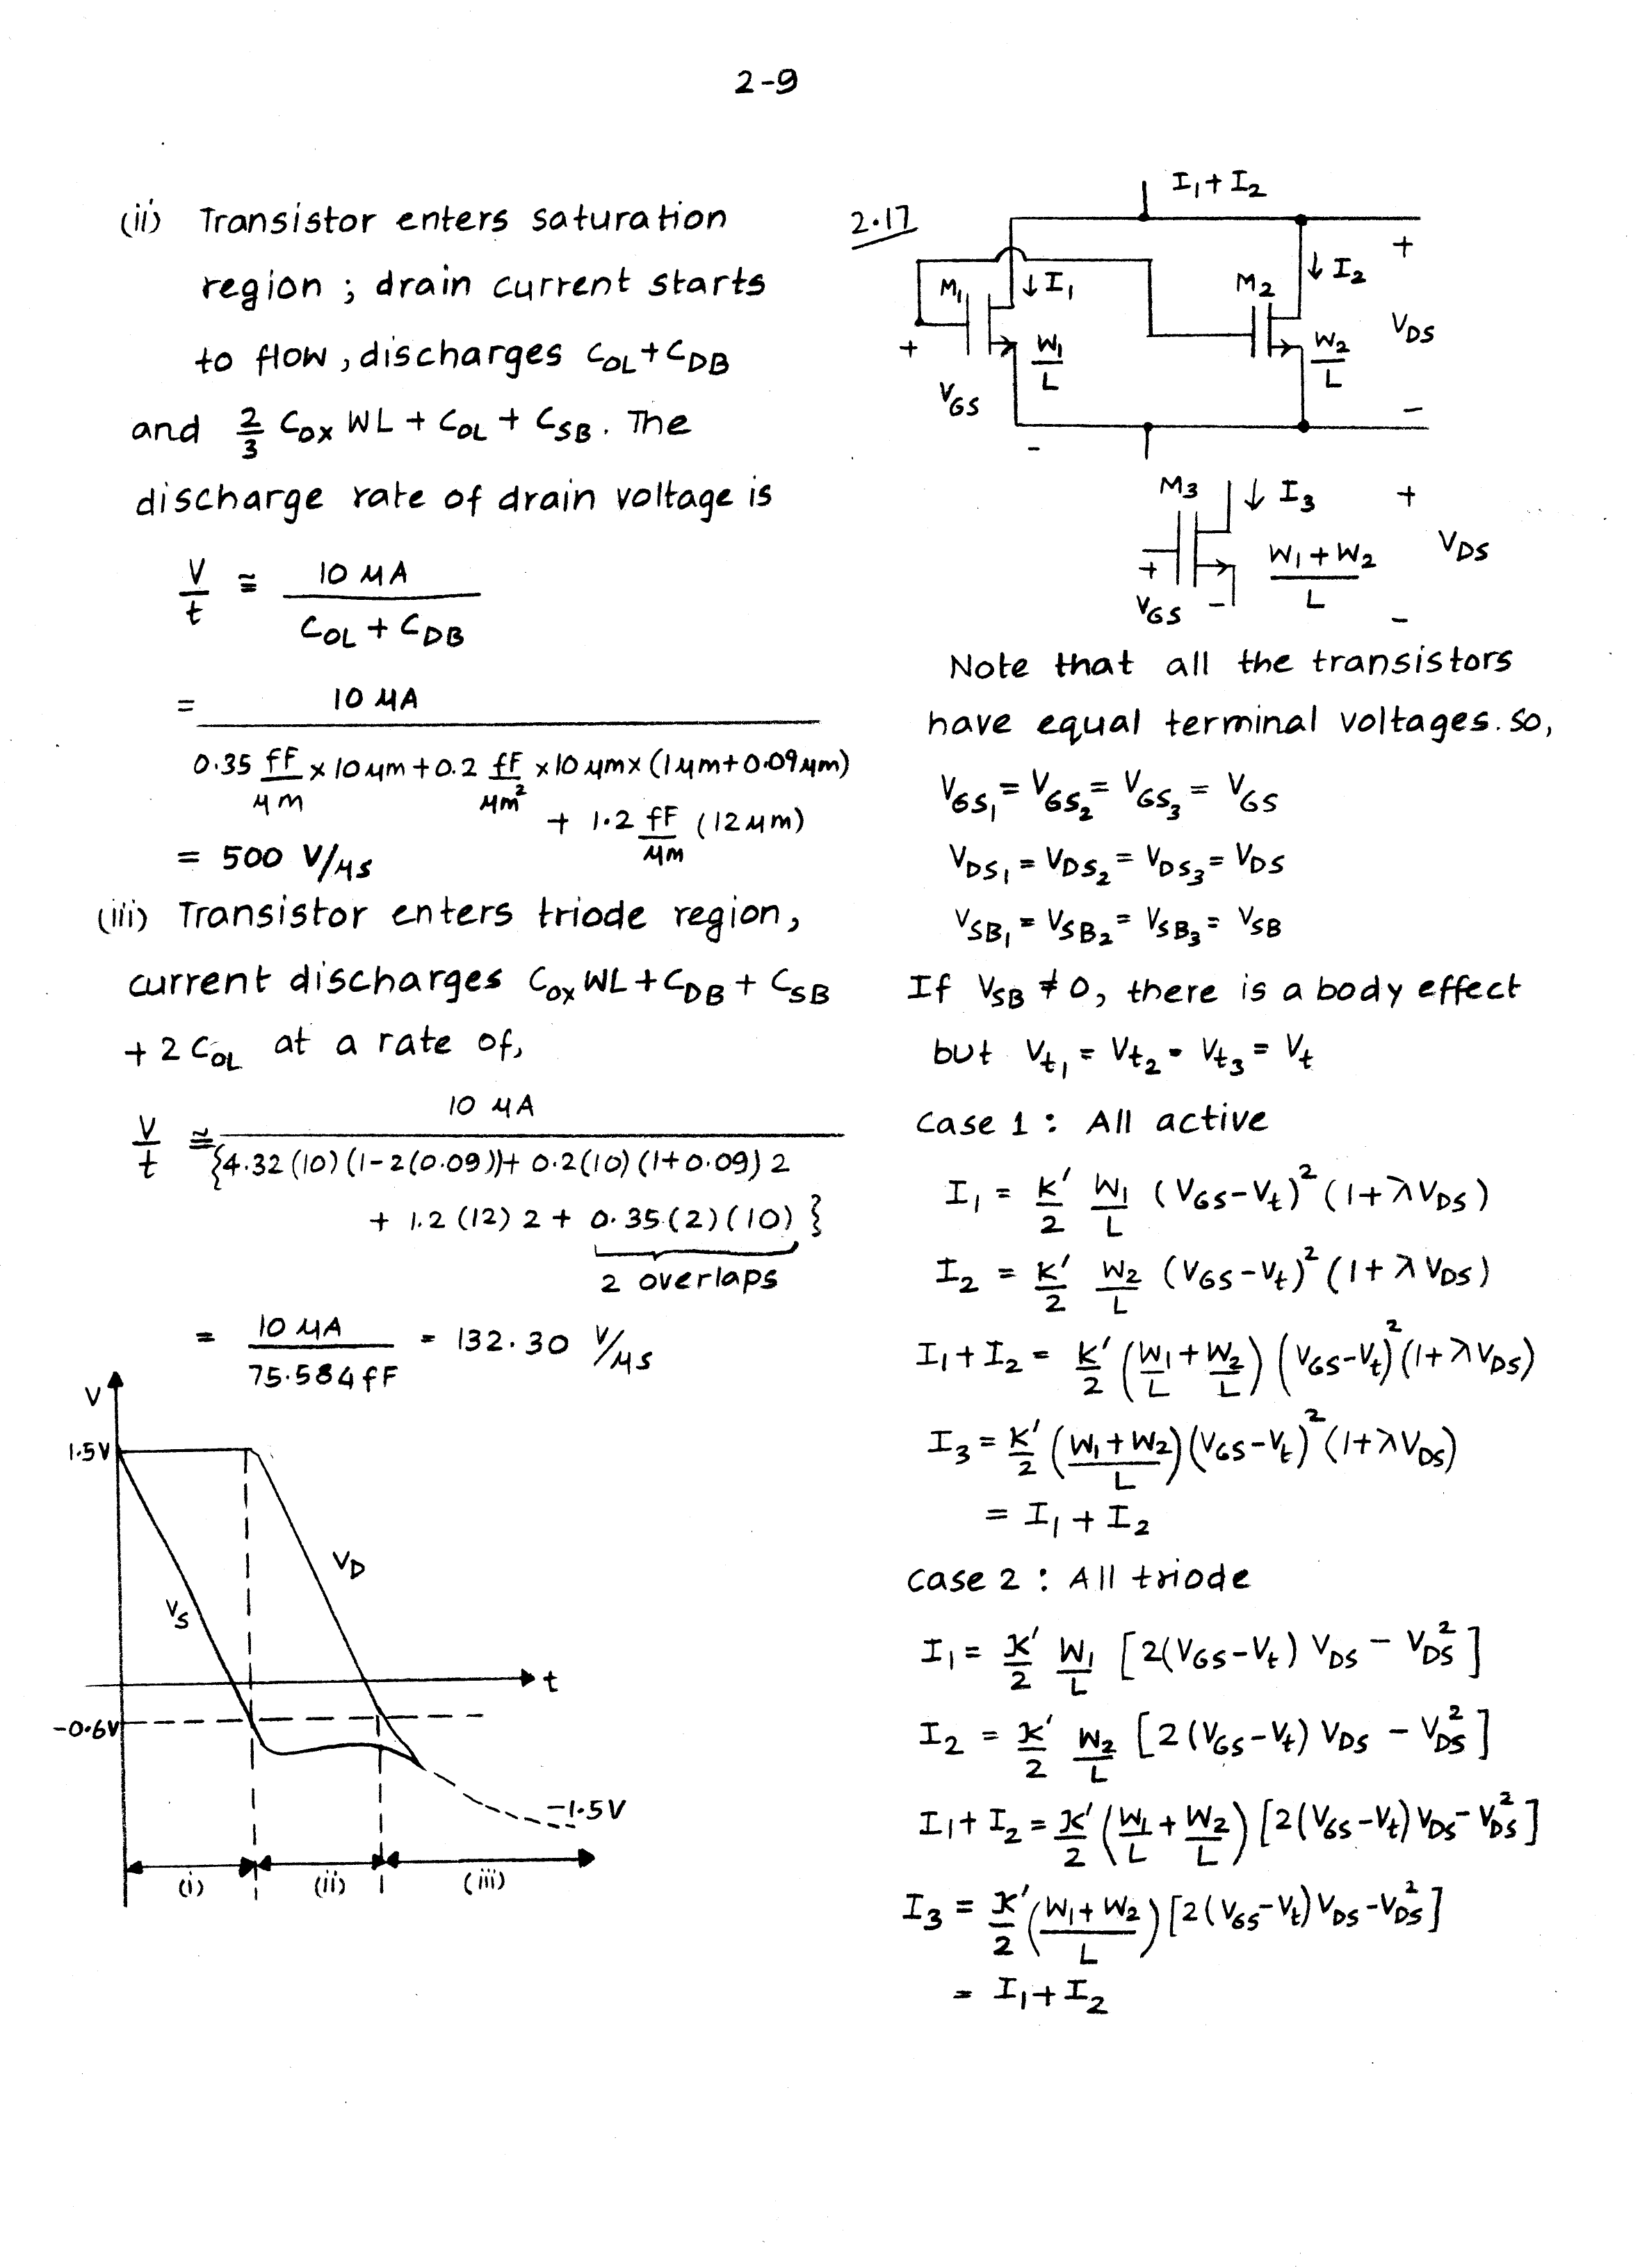 2-9
(ii) Transistor enters saturation
region ; drain current starts
to flow, discharges C_OL + C_DB
and 2/3 C_OX WL + C_OL + C_SB. The
discharge rate of drain voltage is
V/t ≅ 10 µA / (C_OL + C_DB)
= 10 µA / (0.35 fF/µm × 10 µm + 0.2 fF/µm² × 10 µm × (1 µm + 0.09 µm)
+ 1.2 fF/µm (12 µm))
= 500 V/µs
(iii) Transistor enters triode region,
current discharges C_OX WL + C_DB + C_SB
+ 2 C_OL at a rate of,
V/t ≅ 10 µA / {4.32 (10) (1-2(0.09)) + 0.2(10) (1+0.09) 2
+ 1.2 (12) 2 + 0.35 (2) (10) }
2 overlaps
= 10 µA / 75.584 fF = 132.30 V/µs
V
1.5V
V_D
V_S
t
-0.6V
-1.5V
(i) (ii) (iii)
2.17
I₁ + I₂
+
M₁ ↓ I₁ M₂ ↓ I₂
V_DS
+ W₁/L W₂/L
V_GS
-
-
M₃ ↓ I₃ +
W₁ + W₂ / L V_DS
+
V_GS -
-
Note that all the transistors
have equal terminal voltages. So,
V_GS₁ = V_GS₂ = V_GS₃ = V_GS
V_DS₁ = V_DS₂ = V_DS₃ = V_DS
V_SB₁ = V_SB₂ = V_SB₃ = V_SB
If V_SB ≠ 0, there is a body effect
but V_t₁ = V_t₂ = V_t₃ = V_t
case 1 : All active
I₁ = K'/2 W₁/L (V_GS - V_t)² (1 + λ V_DS)
I₂ = K'/2 W₂/L (V_GS - V_t)² (1 + λ V_DS)
I₁ + I₂ = K'/2 (W₁/L + W₂/L) (V_GS - V_t)² (1 + λ V_DS)
I₃ = K'/2 ((W₁ + W₂)/L) (V_GS - V_t)² (1 + λ V_DS)
= I₁ + I₂
case 2 : All triode
I₁ = K'/2 W₁/L [2(V_GS - V_t) V_DS - V_DS²]
I₂ = K'/2 W₂/L [2(V_GS - V_t) V_DS - V_DS²]
I₁ + I₂ = K'/2 (W₁/L + W₂/L) [2(V_GS - V_t) V_DS - V_DS²]
I₃ = K'/2 ((W₁ + W₂)/L) [2(V_GS - V_t) V_DS - V_DS²]
= I₁ + I₂